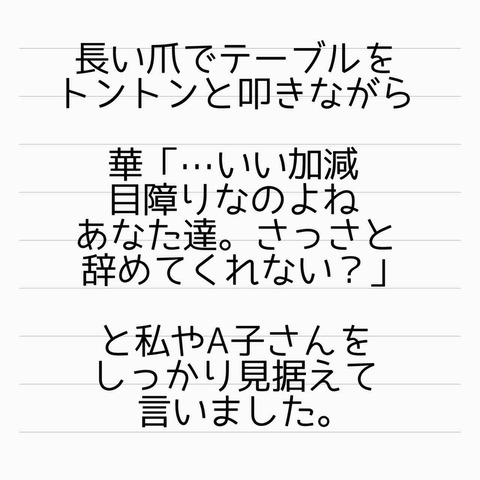 長い爪でテーブルを
トントンと叩きながら
華「…いい加減
目障りなのよね
あなた達。さっさと
辞めてくれない？」
と私やA子さんを
しっかり見据えて
言いました。